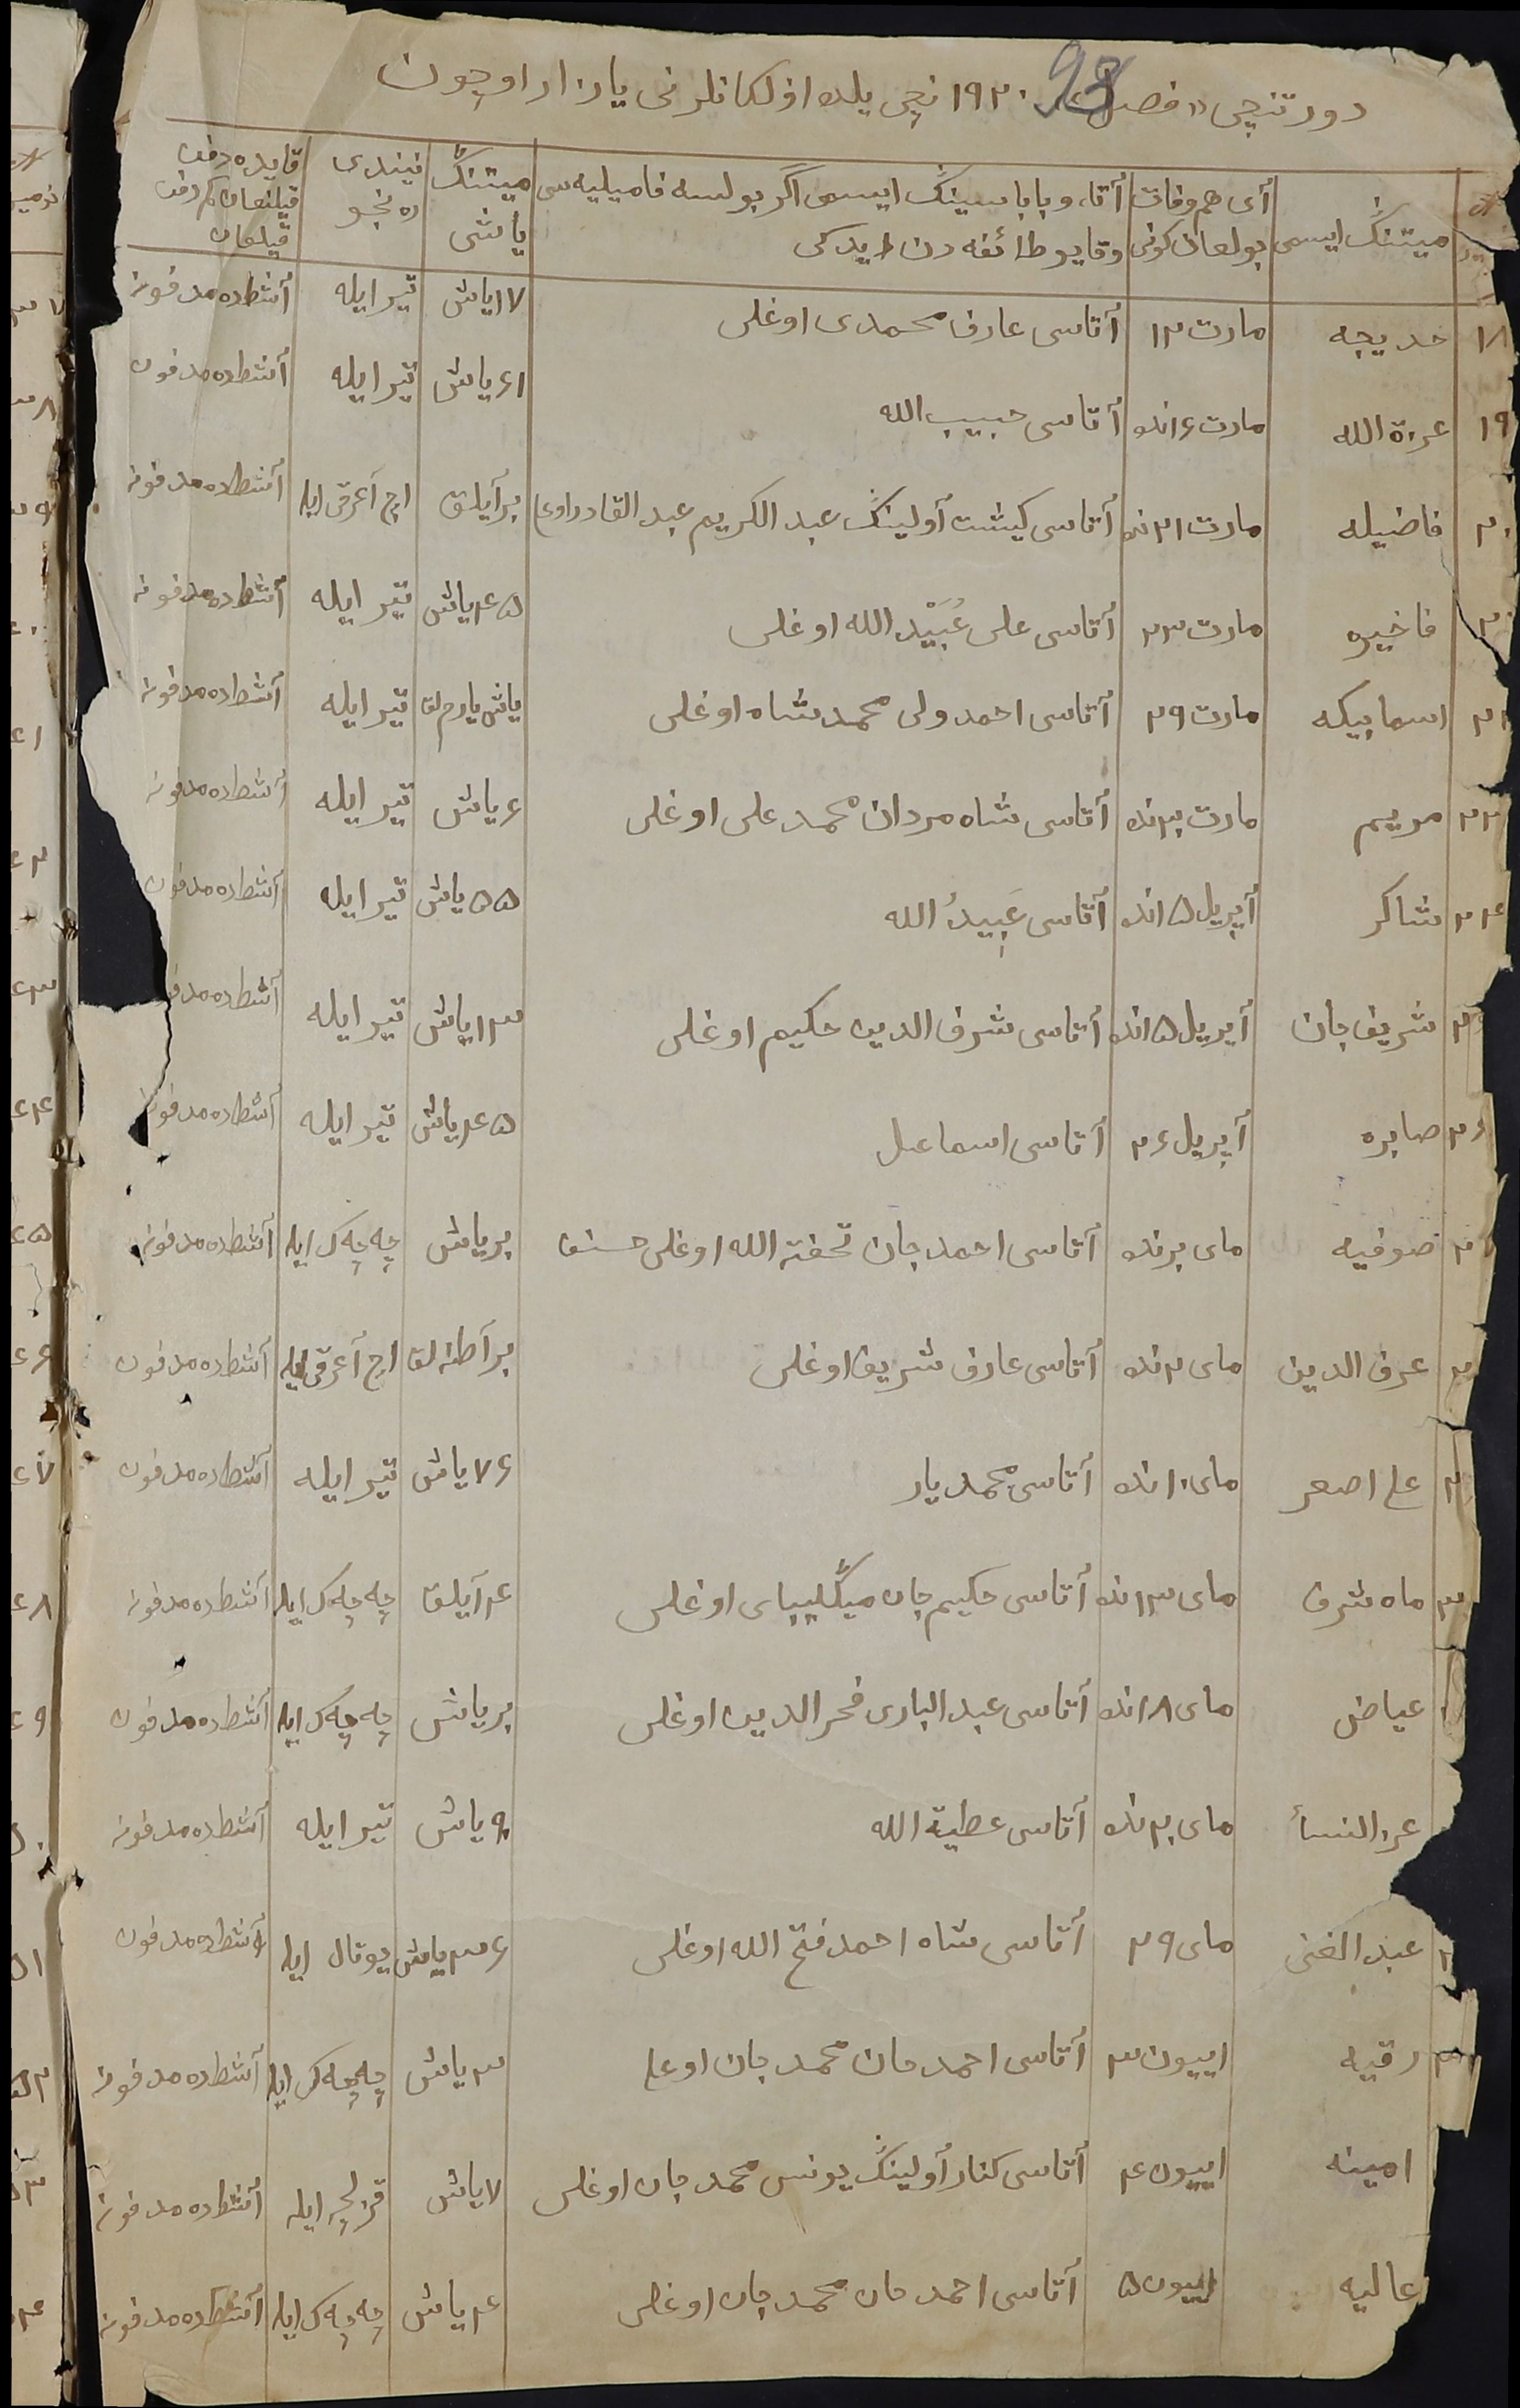 دورتنچی «فصل» ١٩٢٠ نچی یلده اولکانلرنی یازار اوچون
98
میتنڭ ایسمی | آی هم وفات بولغان کونی | أتا، و باباسینڭ ایسمی اگر بولسه فامیلیه سی وقایو طائفه دن ایدکی | میتنڭ یاشی | نیندی رەنجو | قایده دفن قیلنغان کم دفن قیلغان
١٨ خدیجه | مارت ١٢ | أتاسی عارف محمدی اوغلی | ١٧ یاش | تیر ایله | أشطاده مدفونه
١٩ عزة الله | مارت ١٤ انده | أتاسی حبیب الله | ٤١ یاش | تیر ایله | أشطاده مدفون
٢٠ فاضیله | مارت ٢١ نده | أتاسی کیشت أولینڭ عبد الکریم عبد القادر اوغلی | بر آیلق | اچ آغرقی ایله | أشطاده مدفونه
فاخیره | مارت ٢٣ | أتاسی علی عُبَیْد الله اوغلی | ٤٥ یاش | تیر ایله | أشطاده مدفونه
اسما بیکه | مارت ٢٩ | أتاسی احمد ولی محمد شاه اوغلی | یاش یارملق | تیر ایله | أشطاده مدفونه
٢٣ مریم | مارت ٣٠ نده | أتاسی شاه مردان محمد علی اوغلی | ٤ یاش | تیر ایله | أشطاده مدفونه
٢٤ شاکر | أپریل ١٥ انده | أتاسی عَبِیدُ الله | ٥٥ یاش | تیر ایله | أشطاده مدفون
شریف جان | أپریل ١٥ انده | أتاسی شرف الدین حکیم اوغلی | ١٣ یاش | تیر ایله | أشطاده مدفو
٢٦ صابره | أپریل ٢٤ | أتاسی اسماعیل | ٤٥ یاش | تیر ایله | أشطاده مدفونه
صوفیه | مای برنده | أتاسی احمد جان تحفة الله اوغلی حسنف | بر یاش | چه چه ک ایله | أشطاده مدفونه
عرف الدین | مای ٢ نده | أتاسی عارف شریف اوغلی | بر آطنه لق | اچ آغرقی ایله | أشطاده مدفون
علی اصغر | مای ١٠ انده | أتاسی محمد یار | ٧٤ یاش | تیر ایله | أشطاده مدفون
ماه شرف | مای ١٣ انده | أتاسی حکیم جان میڭلیبای اوغلی | ٤ آیلق | چه چه ک ایله | أشطاده مدفونه
عیاض | مای ١٨ انده | أتاسی عبد الباری فخر الدین اوغلی | بر یاش | چه چه ک ایله | أشطاده مدفون
عزالنسأ | مای ٢٠ نده | أتاسی عطیة الله | ٩ یاش | تیر ایله | أشطاده مدفونه
عبد الغنی | مای ٢٩ | أتاسی شاه احمد فتح الله اوغلی | ٣٤ یاش | یوتال ایله | أشطاده مدفون
رقیه | اییون ٣ | أتاسی احمد جان محمد جان اوغلی | ٣ یاش | چه چه ک ایله | أشطاده مدفونه
امینه | اییون ٤ | أتاسی کنار أولینڭ یونس محمد جان اوغلی | ٧ یاش | قزلچه ایله | أشطاده مدفونه
عالیه | اییون ٥ | أتاسی احمد جان محمد جان اوغلی | ٤ یاش | چه چه ک ایله | أشطاده مدفونه